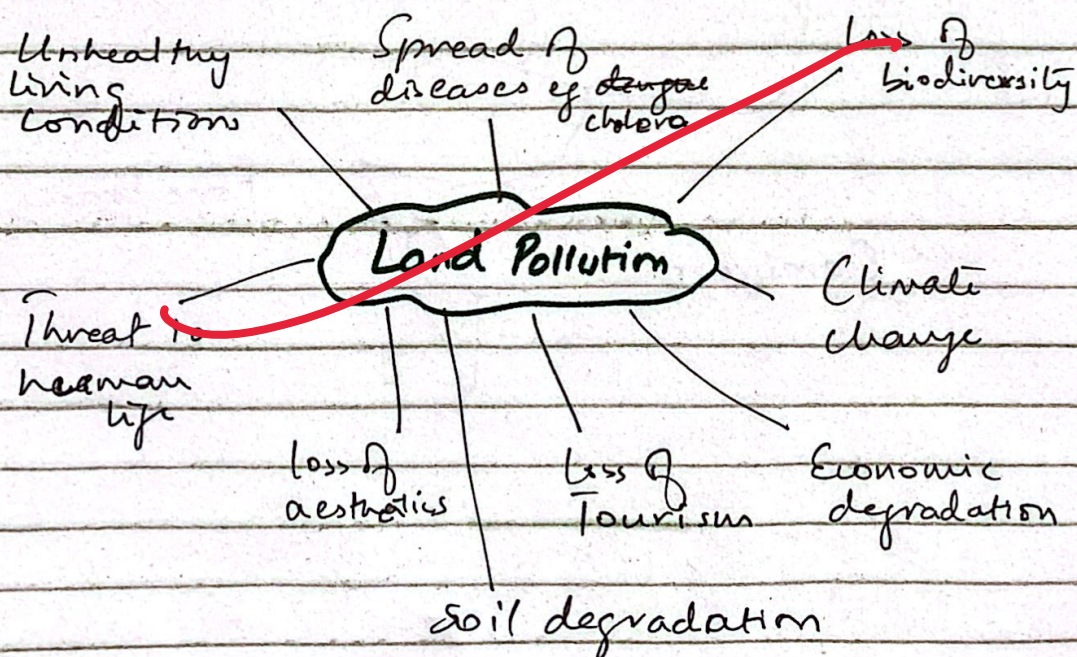 Unhealthy
living
conditions
Spread of
diseases eg dengue
cholera
Loss of
biodiversity
Land Pollution
Threat to
human
life
Climate
change
loss of
aesthetics
Loss of
Tourism
Economic
degradation
Soil degradation